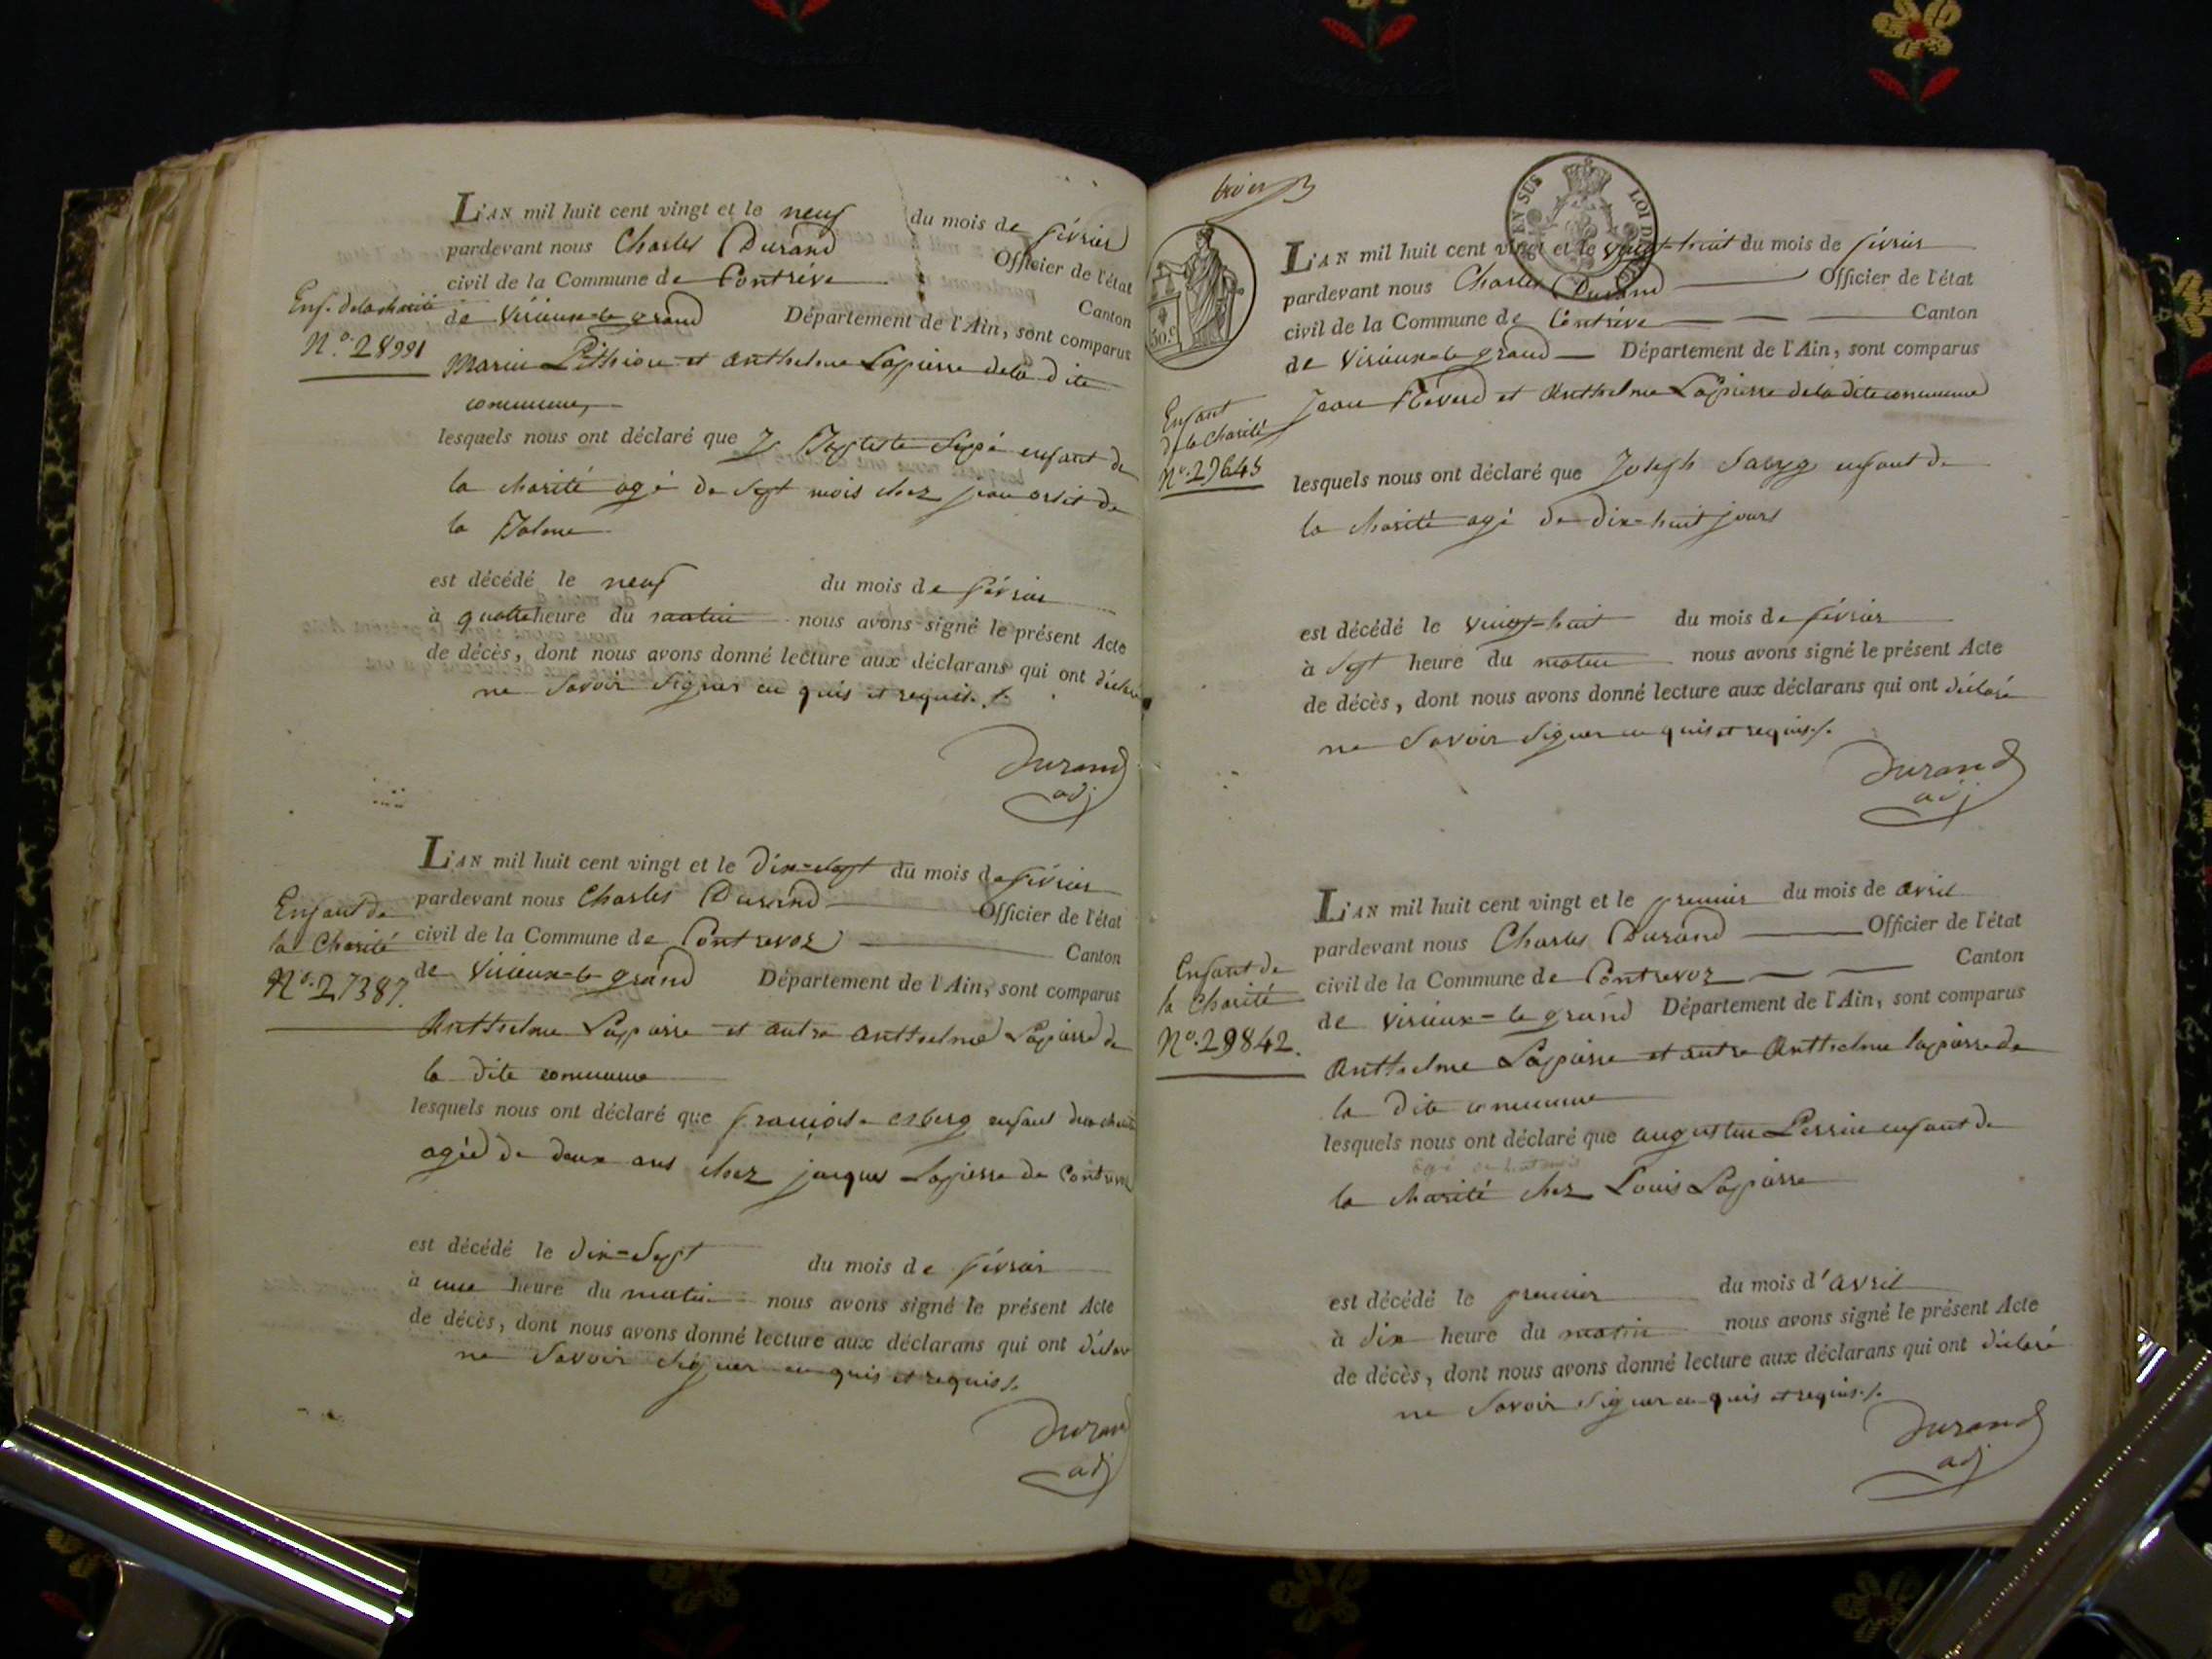 L'AN mil huit cent vingt et le neuf du mois de février
pardevant nous Charles Durand Officier de l'état
civil de la Commune de Contrève Canton
de Virieux-le grand Département de l'Ain, sont comparus
Enf. de la charité
N.º 28991
et anthelme Lapierre de la dite
commune,
lesquels nous ont déclaré que J Baptiste enfant de
la charité agé de sept mois chez jean de
la Balme
est décédé le neuf du mois de février
à quatre heure du matin nous avons signé le présent Acte
de décès, dont nous avons donné lecture aux déclarans qui ont déclaré
ne savoir signer en quis et requis ./.
Durand
adj
L'AN mil huit cent vingt et le dix-sept du mois de février
pardevant nous Charles Durand Officier de l'état
civil de la Commune de Contrevoz Canton
de Virieux-le grand Département de l'Ain, sont comparus
Enfant de
la Charité
N.º 27387.
Anthelme Lapierre et autre anthelme Lapierre de
la dite commune
lesquels nous ont déclaré que françoise enfant de la charité
agée de deux ans chez jacques Lapierre de Contrevoz
est décédé le dix-sept du mois de février
à une heure du matin nous avons signé le présent Acte
de décès, dont nous avons donné lecture aux déclarans qui ont déclaré
ne savoir signer en quis et requis ./.
Durand
adj
EN SUS LOI DE
L'AN mil huit cent vingt et le vingt-huit du mois de février
pardevant nous Charles Durand Officier de l'état
civil de la Commune de Contrève Canton
de Virieux-le grand Département de l'Ain, sont comparus
Enfant
de la Charité
N.º 29645
Jean et Anthelme Lapierre de la dite commune
lesquels nous ont déclaré que Joseph enfant de
la charité agé de dix-huit jours
est décédé le vingt-huit du mois de février
à sept heure du matin nous avons signé le présent Acte
de décès, dont nous avons donné lecture aux déclarans qui ont déclaré
ne savoir signer en quis et requis ./.
Durand
adj
L'AN mil huit cent vingt et le premier du mois de avril
pardevant nous Charles Durand Officier de l'état
civil de la Commune de Contrevoz Canton
de Virieux-le grand Département de l'Ain, sont comparus
Enfant de
la Charité
N.º 29842.
Anthelme Lapierre et autre Anthelme lapierre de
la dite commune
lesquels nous ont déclaré que augustin Perrin enfant de
la charité chez Louis Lapierre
est décédé le premier du mois d'avril
à dix heure du matin nous avons signé le présent Acte
de décès, dont nous avons donné lecture aux déclarans qui ont déclaré
ne savoir signer en quis et requis ./.
Durand
adj